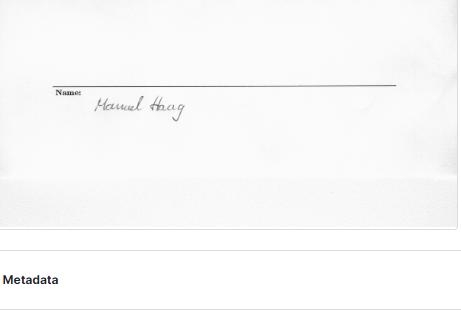 Name:
Manuel Haag
Metadata